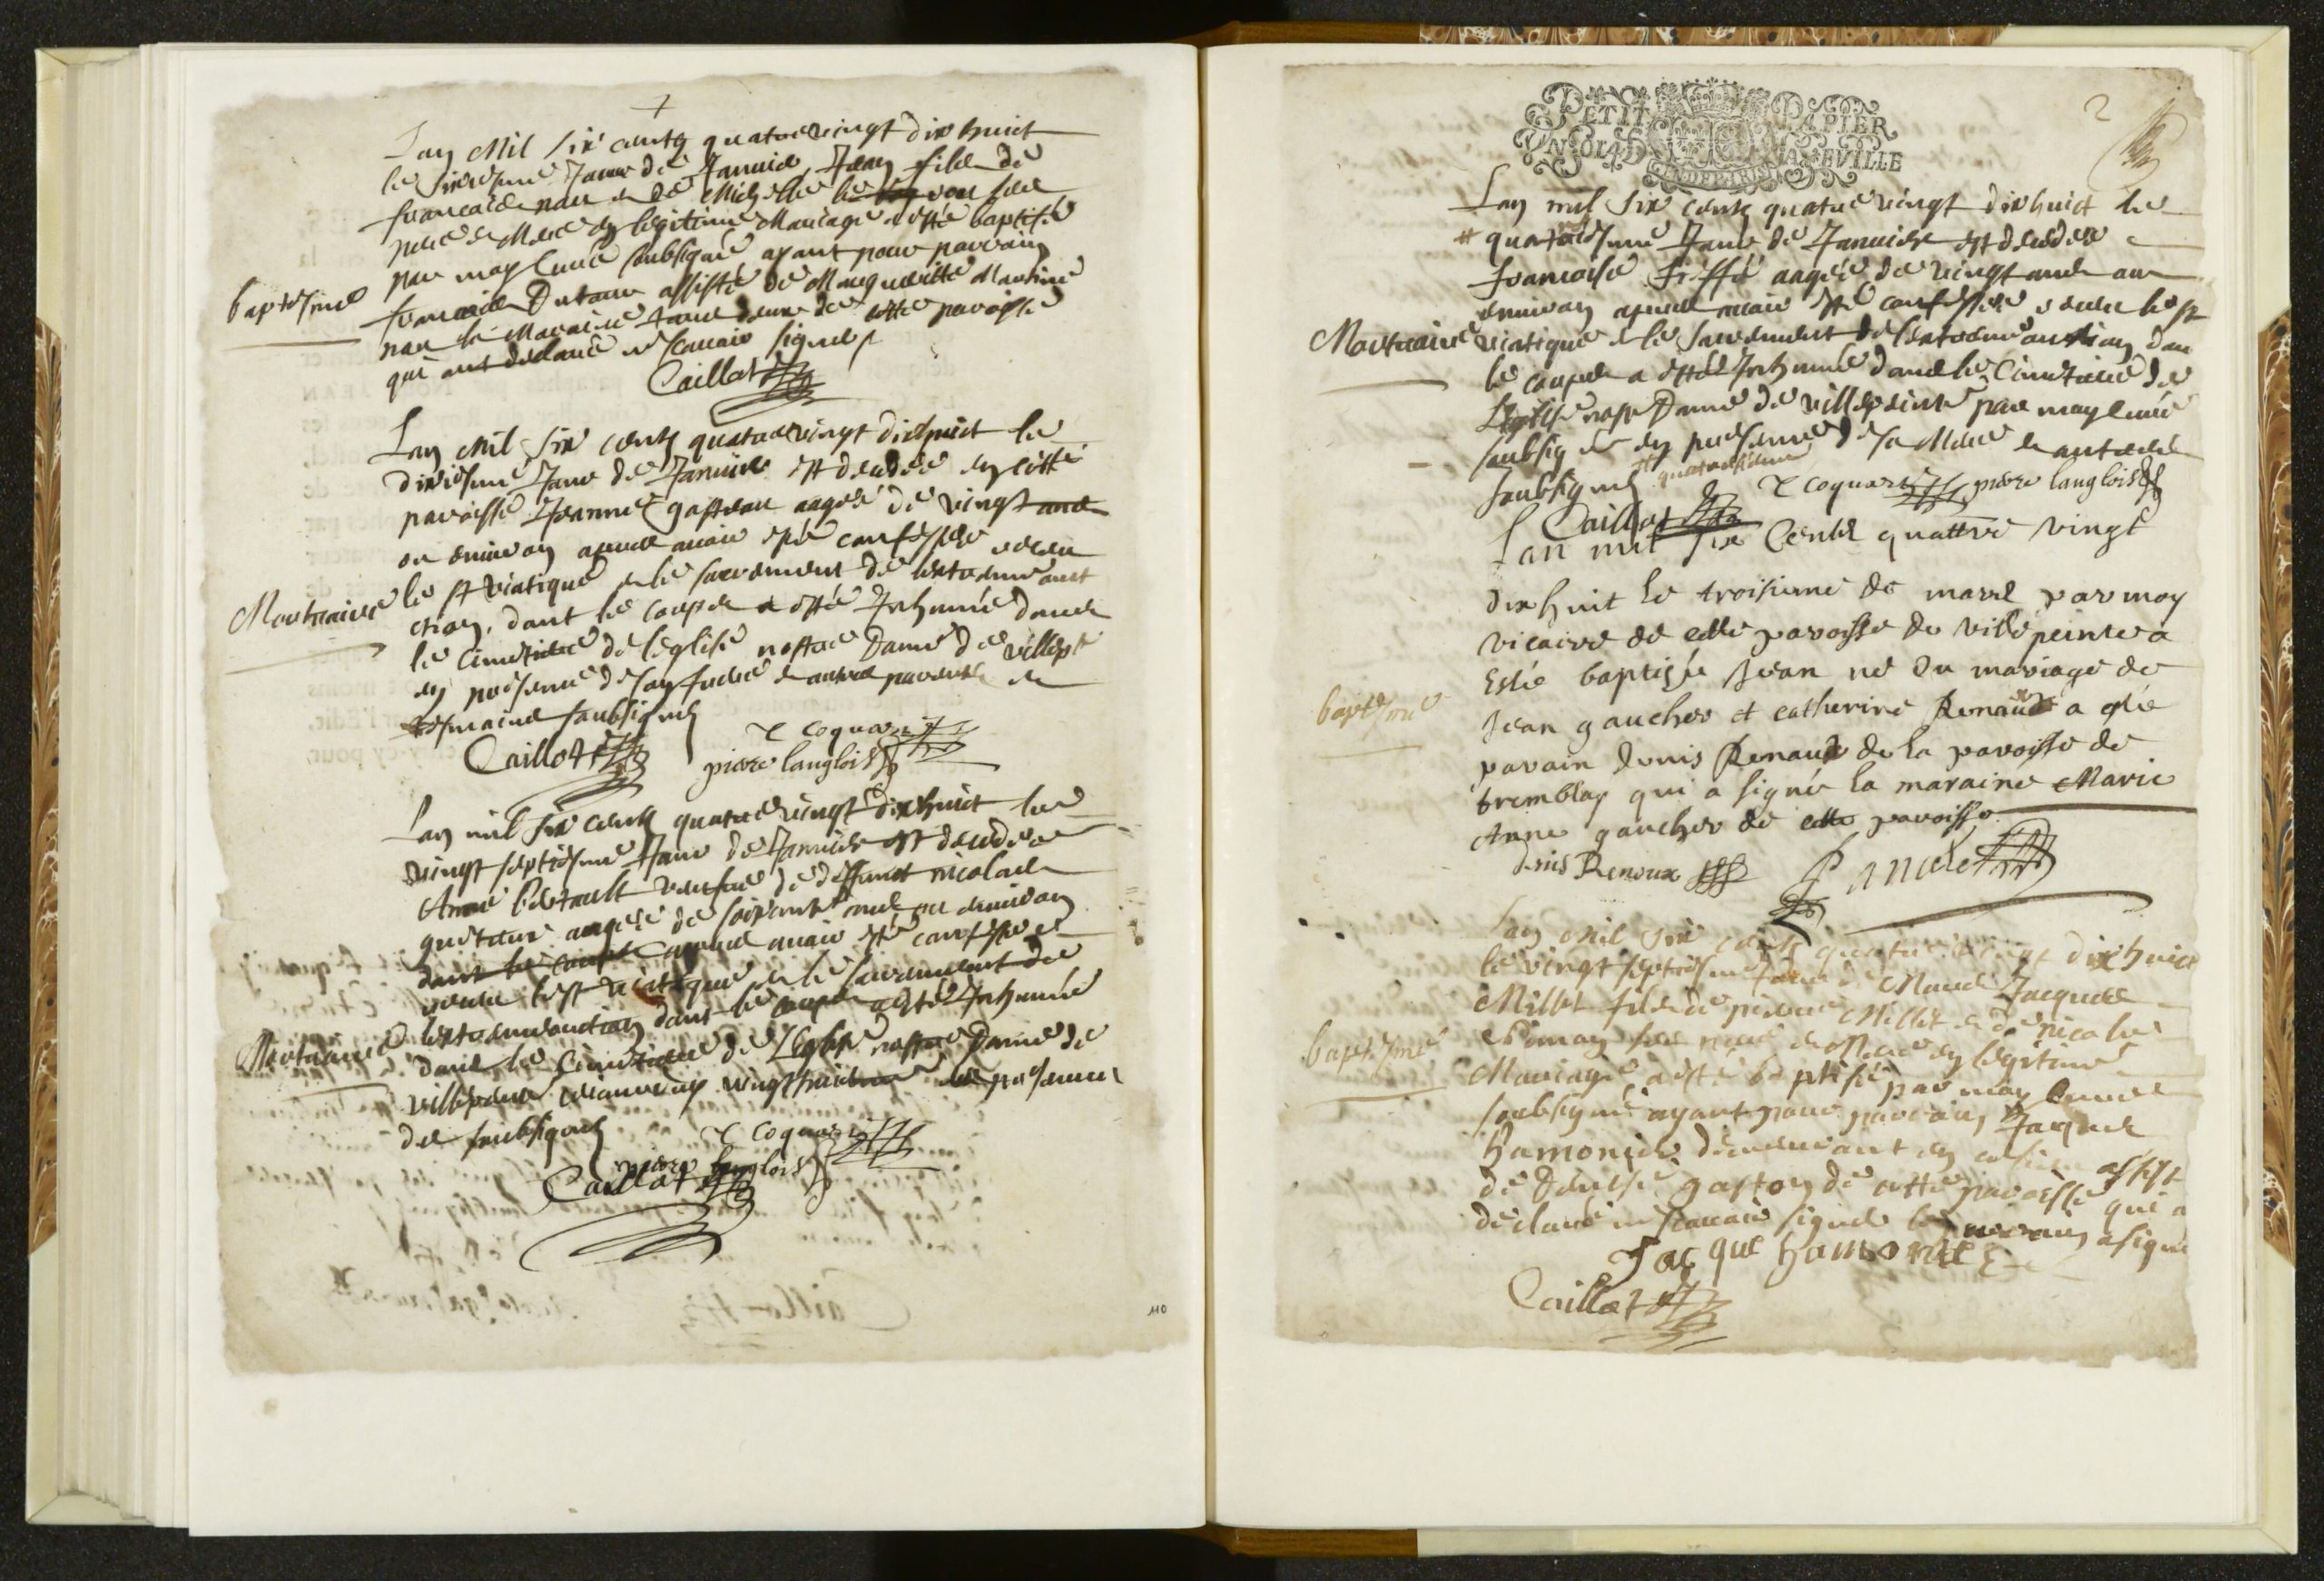 Lan Mil six cents quatre vingt dix huict
le sixiesme Jour de Janvier Jean fils de
francois nau et de Michelle le von ses
pere et Mere en legitime Mariage a esté baptisé
par moy Curé soubsigné ayant pour parrain
baptesme
francois Dutour assisté de Marguerite Martine
pour la Maraine tous deux de cette paroisse
qui ont declaré ne scavoir signer
Caillot
Lan Mil six cents quatre vingt dixhuict le
dixiesme Jour de Janvier est decedée en cette
paroisse Jeanne gasteau aagée de vingt ans
ou environ apres avoir esté confessée receu
Mortuaire
le st viatique et le sacrement de lextremeonct
ction, dont le corps a esté Inhumé dans
le Cimetiere de leglise nostre Dame de villep
en presence de son frere et autres parents et
tesmoins soubsignez
Caillot
Coquart
pierre langlois
Lan mil six cents quatre vingt dixhuict le
vingt septiesme Jour de Janvier est decedée
Anne veufve de deffunct nicolas
aagée de soixante ans ou environ
dont le corps apres avoir esté confessée
receu lest viatique et le sacrement de
Mortuaire
lextremeonction dont le corps a esté Inhumée
dans le Cimetiere de Leglise nostre Dame de
villepinte vingthuict presence
des soubsignez
Coquart
pierre langlois
Caillot
110
PETIT PAPIER
2
Lan mil six cents quatre vingt dixhuict le
quatorsiesme Jour de Janvier est decedée
francoise aagée de vingt ans ou
environ apres avoir esté confessée receu lest
Mortuaire
viatique et le sacrement de lextremeonction dont
le corps a esté Inhumé dans le Cimetiere de
Leglise nostre Dame de villepinte par moy curé
soubsigné en presence de sa Mere et autres
soubsignez
quatorsiesme
Coquart
pierre langlois
Caillot
Lan mil six Cents quattre vingt
dix huit le troisieme de mars par moy
vicaire de cette paroisse de villepeinte a
Esté baptizée Jean né du mariage de
baptesme
Jean gaucher et catherine Renaud a esté
parain denis Renaud de la paroisse de
tremblay qui a signé la maraine Marie
Anne gaucher de cette paroisse
denis Renoux
Lan Mil six cents quatre vingt dixhuict
le vingt septiesme Jour de Mars Jacques
Millet fils de pierre Millet et de nicole
ses pere et Mere en legitime
baptesme
Mariage a esté baptisé par moy Curé
soubsigné ayant pour parrain Jacques
hamonier demeurant en assist
de Denise gaston de cette paroisse qui a
declaré ne scavoir signer le parrain a signé
Jacque hamonie
Caillot